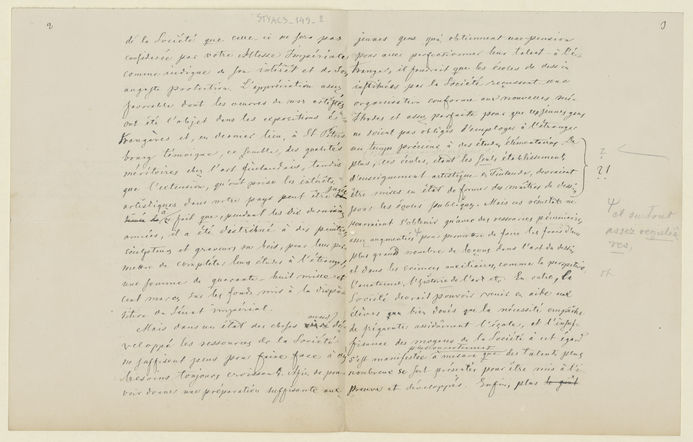 2
STYACS_149_2
de la Société que celle-ci ne sera pas
considérée par votre Altesse Impériale
comme indigne de son intérêt et de son
auguste protection. L'appréciation assez
favorable dont les œuvres de nos artistes
ont été l'objet dans les expositions é-
trangères et, en dernier lieu, à St Péters
bourg témoigne, ce semble, des qualités
méritoires chez l'art finlandais, tandis
que l'extension, qu'ont prise les intérêts
artistiques dans notre pays peut être
fait que, pendant les dix dernières
années, il a été distribué à des peintres,
sculpteurs et graveurs sur bois, pour leur per
mettre de compléter leurs études à l'étranger,
une somme de quarante huit mille et
cent marcs sur les fonds mis à la dispo
sition du Sénat impérial.
Mais dans un état des choses aussi dé-
veloppé les ressources de la Société
ne suffisent pour faire face à des
besoins toujours croissants. Afin de pou
voir donner une préparation suffisante aux
3
jeunes gens qui obtiennent une pension
pour aller perfectionner leur talent à l'é-
tranger, il faudrait que les écoles de dessin
instituées par la Société reçussent une
organisation conforme aux nouvelles mé-
thodes et assez parfaite pour que ces jeunes gens
ne soient pas obligés d'employer à l'étranger
un temps précieux à des études élémentaires. De
plus, ces écoles, étant les seuls établissements
d'enseignement artistique en Finlande, devraient
être mises en état de former des maîtres de dessin
pour les écoles publiques. Mais ces résultats ne
sauraient s'obtenir qu'avec des ressources pécuniaires
assez augmentées pour permettre de faire les frais d'un
plus grand nombre de leçons dans l'art du dessin
et dans les sciences auxiliaires, comme la perspective,
l'anatomie, l'histoire de l'art etc. En outre, la
Société devrait pouvoir venir en aide aux
élèves que bien doués que la nécessité empêche
de fréquenter assidûment l'école, et l'insuf-
fisance des moyens de la Société à cet égard
s'est manifestée à mesure que des talents plus
nombreux se sont présentés pour être mis à l'é-
preuve et développés. Enfin, plus le goût
?
?!
et surtout
assez réguliè
res,